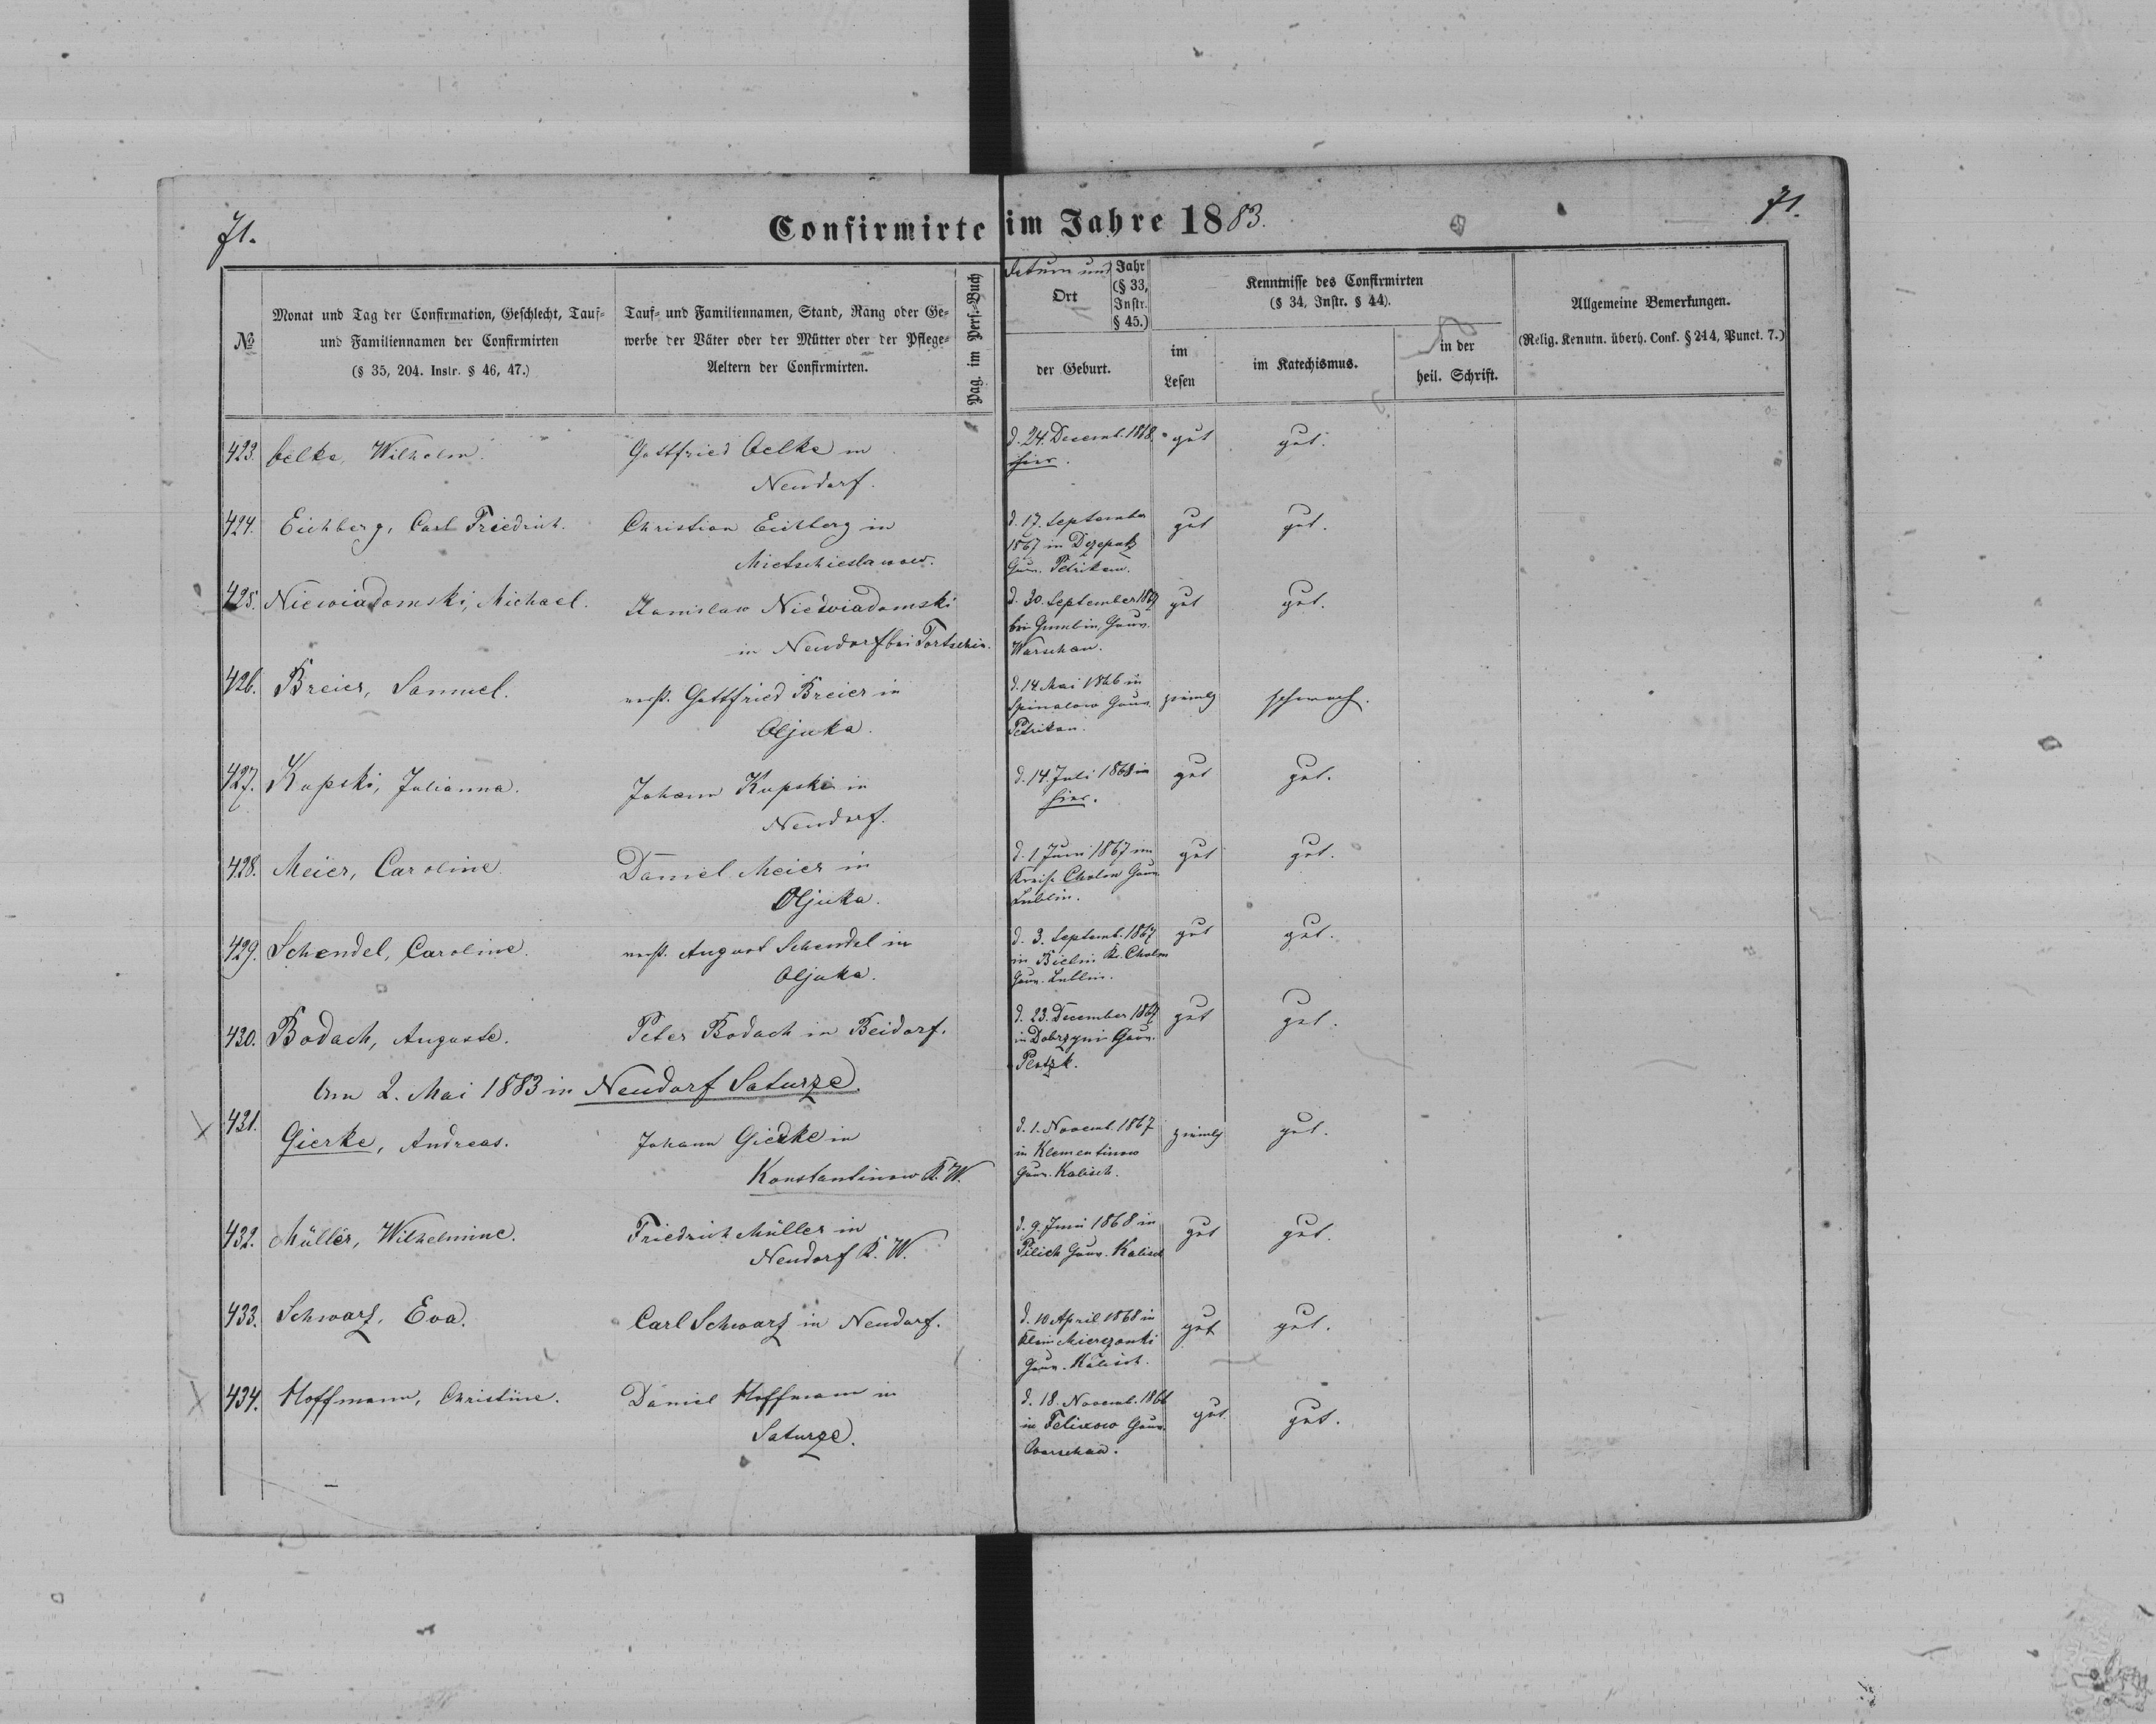 71.
Confirmirte im Jahre 1883.
71.
№
Monat und Tag der Confirmation, Geschlecht, Tauf-
und Familiennamen der Confirmirten
(§ 35, 204. Instr. § 46, 47.)
Tauf- und Familiennamen, Stand, Rang oder Ge-
werbe der Väter oder der Mütter oder der Pflege-
Aeltern der Confirmirten.
Pag. im Pers.-Buch
Datum und
Ort
Jahr
(§ 33,
Instr.
§ 45.)
der Geburt.
Kenntnisse des Confirmirten
(§ 34, Instr. § 44).
im
Lesen
im Katechismus.
in der
heil. Schrift.
Allgemeine Bemerkungen.
(Relig. Kenntn. überh. Conf. § 214, Punct. 7.)
423. Oelke, Wilhelm.
Gottfried Oelke in
Neudorf.
d. 24. Decemb. 1868
hier.
gut
gut.
424. Eichberg, Carl Friedrich.
Christian Eichberg in
Mietschieslawow.
d. 17. September
1867 in
Gouv. Petrikau.
gut
gut.
425. Niewiadomski, Michael.
Stanislaw Niewiadomski
in Neudorf bei Tortschin.
d. 30. September
bei Gombin, Gouv.
Warschau.
gut
gut.
426. Breier, Samuel.
verst. Gottfried Breier in
Oljuka.
d. 14 Mai 1866 in
Spinalow Gouv.
Petrikau.
ziemlg
schwach.
427. Kupski, Julianna.
Johann Kupski in
Neudorf.
d. 14. Juli 1868 in
hier.
gut
gut.
428. Meier, Caroline.
Daniel Meier in
Oljuka.
d. 1 Juni 1867 im
Kreise Cholm Gouv.
Lublin.
gut
gut.
429. Schendel, Caroline.
verst. August Schendel in
Oljuka.
d. 3. Septemb. 1867
in Bielin Kr. Cholm
Gouv. Lublin.
gut
gut.
430. Bodach, Auguste.
Peter Bodach in Beidorf.
d. 23. December 1867
in Dobrzyn Gouv.
Plotzk.
gut
gut.
Am 2. Mai 1883 in Neudorf Saturze.
431.
Gierke, Andreas.
Johann Gierke in
Konstantinow K. W.
d. 1. Novemb. 1867
in Klementinow
Gouv. Kalisch.
ziemlg
gut.
432. Müller, Wilhelmine.
Friedrich Müller in
Neudorf K. W.
d. 9. Juni 1868 in
Pilich Gouv. Kalisch
gut
gut.
433. Schwarz, Eva.
Carl Schwarz in Neudorf.
d. 10 April 1868 in
Klein
Gouv. Kalisch.
gut
gut.
434. Hoffmann, Christine.
Daniel Hoffmann in
Saturze.
d. 18. Novemb. 1866
in Felixow Gouv.
Warschau.
gut
gut.